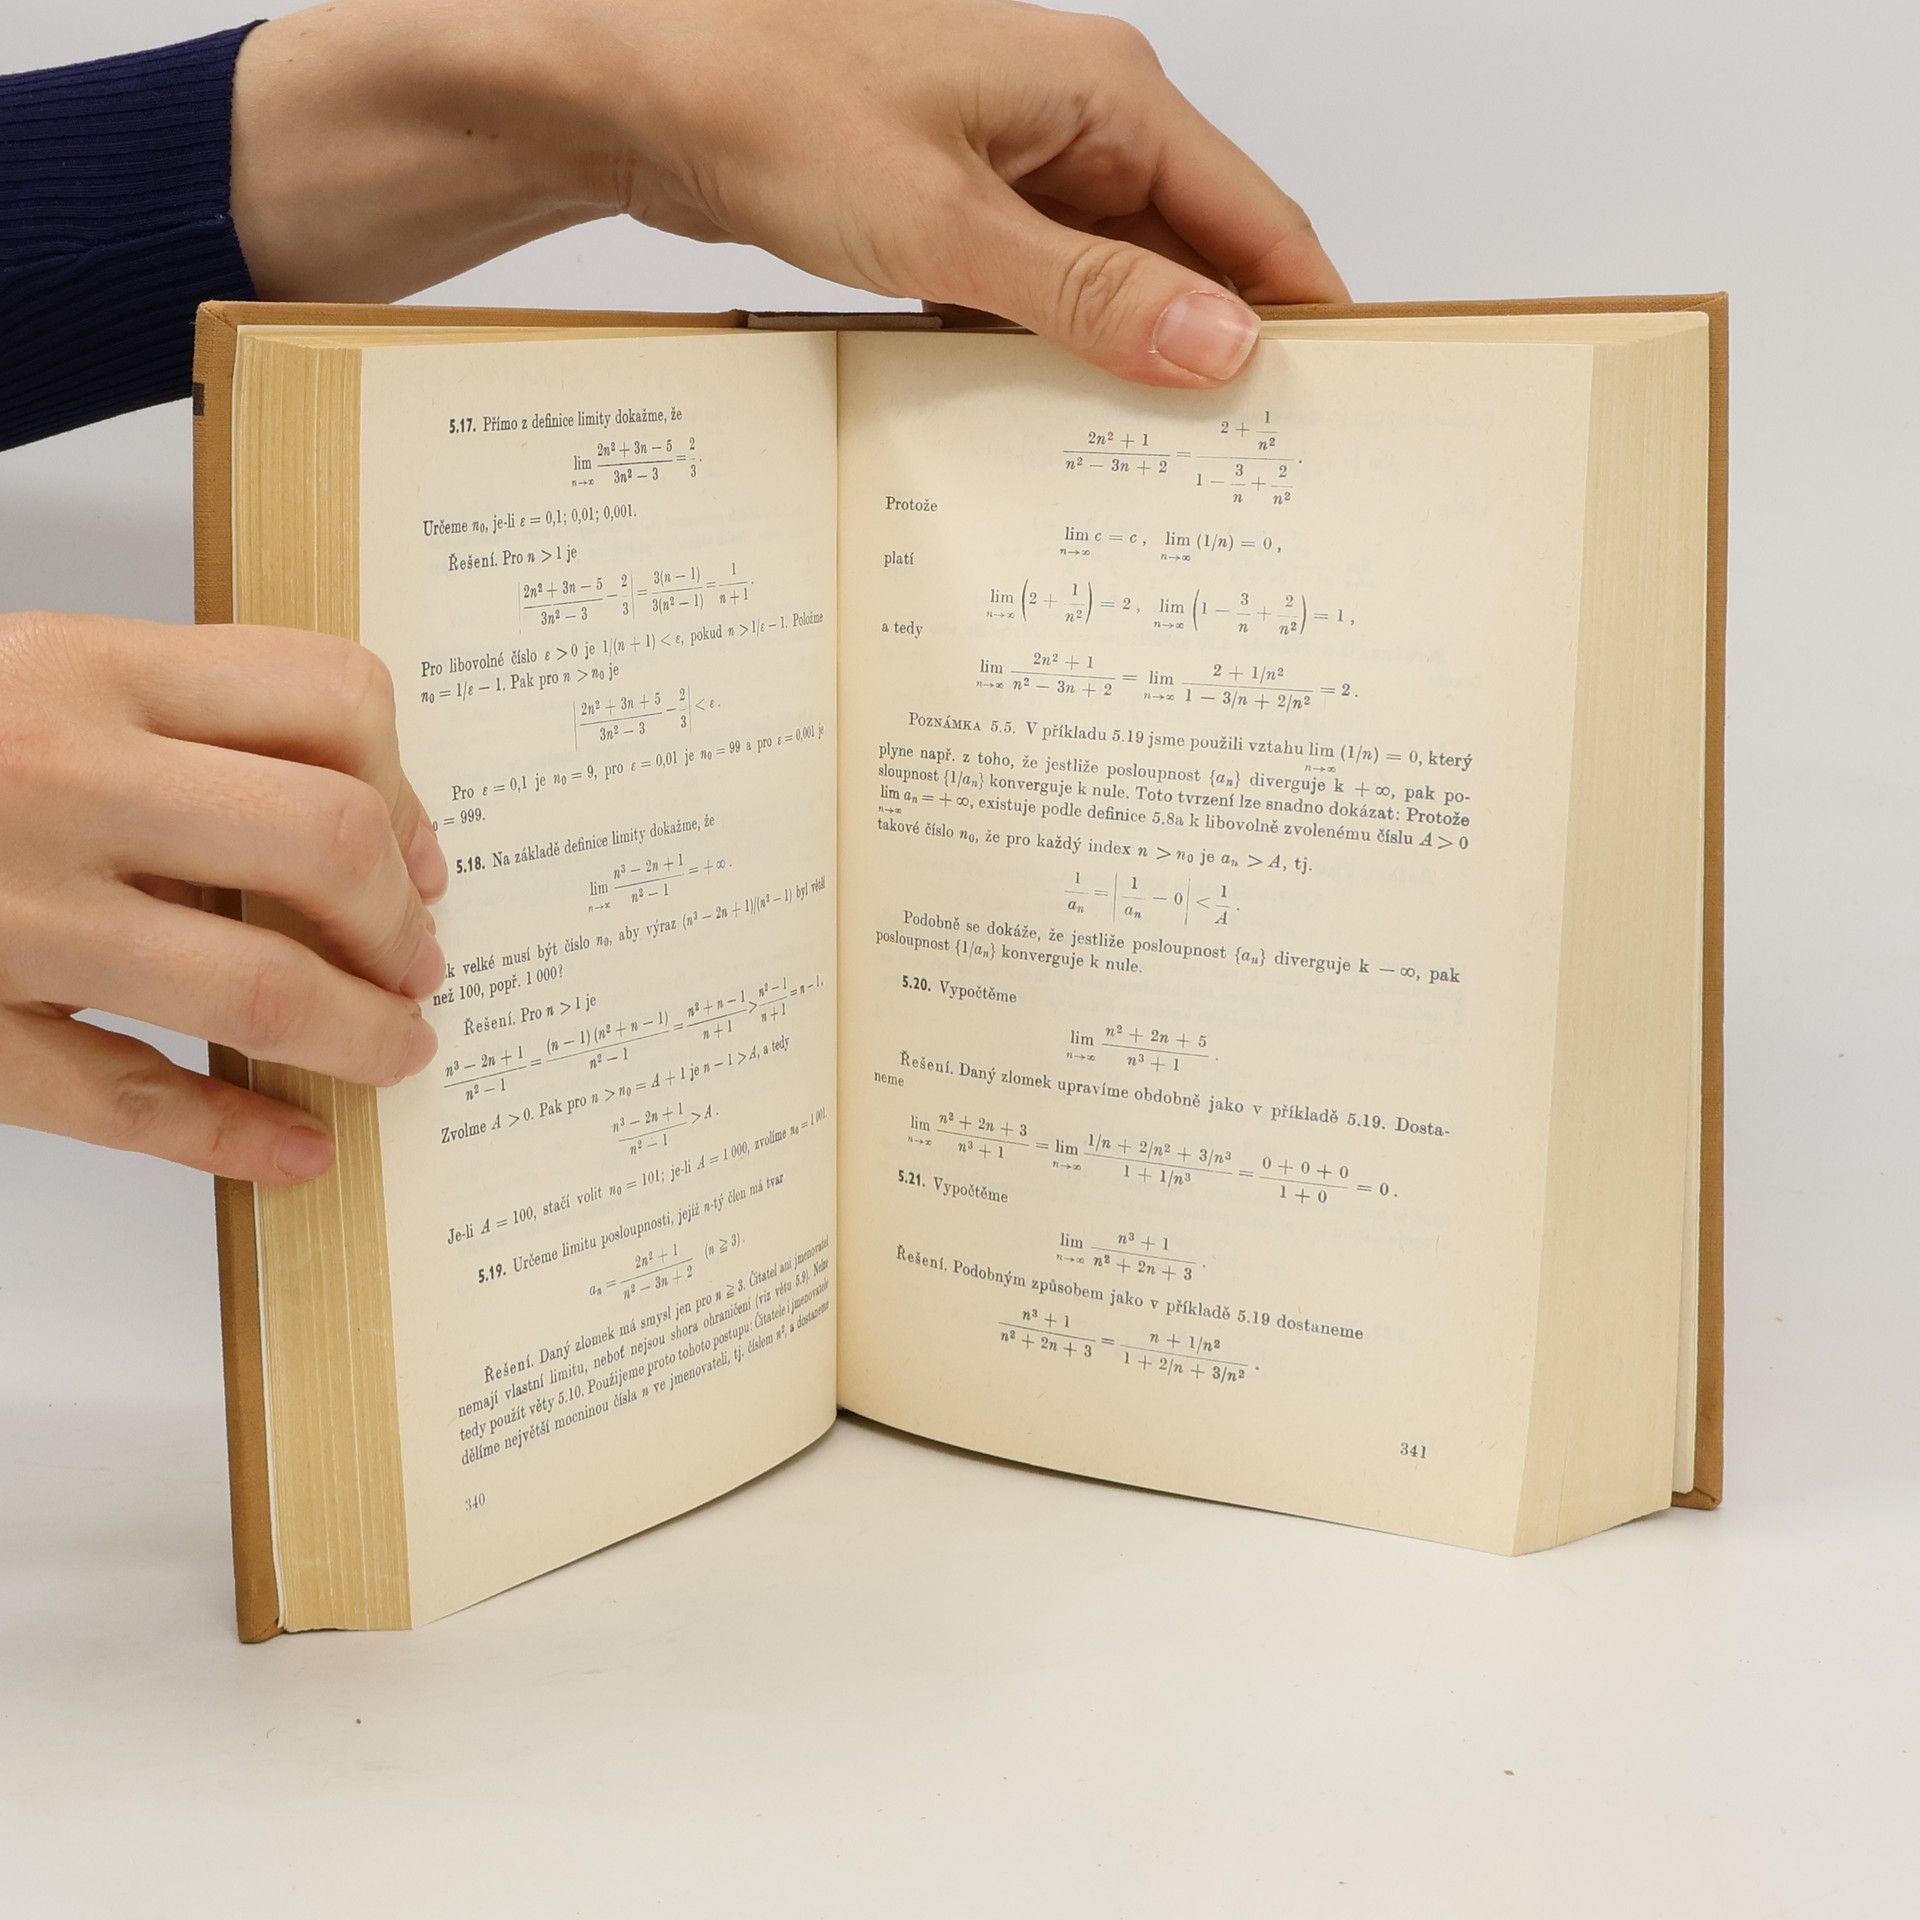 5.17. Přímo z definice limity dokažme, že
lim n→∞ (2n² + 3n − 5)/(3n² − 3) = 2/3.
Určeme n₀, je-li ε = 0,1; 0,01; 0,001.
Řešení. Pro n > 1 je
|(2n² + 3n − 5)/(3n² − 3) − 2/3| = 3(n − 1)/3(n² − 1) = 1/(n + 1).
Pro libovolné číslo ε > 0 je 1/(n + 1) < ε, pokud n > 1/ε − 1. Položme
n₀ = 1/ε − 1. Pak pro n > n₀ je
|(2n² + 3n + 5)/(3n² − 3) − 2/3| < ε.
Pro ε = 0,1 je n₀ = 9, pro ε = 0,01 je n₀ = 99 a pro ε = 0,001 je
₀ = 999.
5.18. Na základě definice limity dokažme, že
lim n→∞ (n³ − 2n + 1)/(n² − 1) = +∞.
k velké musí být číslo n₀, aby výraz (n³ − 2n + 1)/(n² − 1) byl větší
než 100, popř. 1 000?
Řešení. Pro n > 1 je
(n³ − 2n + 1)/(n² − 1) = (n − 1)(n² + n − 1)/(n² − 1) = (n² + n − 1)/(n + 1) > (n² − 1)/(n + 1) = n − 1.
Zvolme A > 0. Pak pro n > n₀ = A + 1 je n − 1 > A, a tedy
(n³ − 2n + 1)/(n² − 1) > A.
Je-li A = 100, stačí volit n₀ = 101; je-li A = 1 000, zvolíme n₀ = 1 001.
5.19. Určeme limitu posloupnosti, jejíž n-tý člen má tvar
aₙ = (2n² + 1)/(n² − 3n + 2) (n ≧ 3).
Řešení. Daný zlomek má smysl jen pro n ≧ 3. Čitatel ani jmenovatel
nemají vlastní limitu, neboť nejsou shora ohraničeni (viz větu 5.9). Nelze
tedy použít věty 5.10. Použijeme proto tohoto postupu: Čitatele i jmenovatele
dělíme největší mocninou čísla n ve jmenovateli, tj. číslem n², a dostaneme
340
(2n² + 1)/(n² − 3n + 2) = (2 + 1/n²)/(1 − 3/n + 2/n²).
Protože
lim n→∞ c = c, lim n→∞ (1/n) = 0,
platí
lim n→∞ (2 + 1/n²) = 2, lim n→∞ (1 − 3/n + 2/n²) = 1,
a tedy
lim n→∞ (2n² + 1)/(n² − 3n + 2) = lim n→∞ (2 + 1/n²)/(1 − 3/n + 2/n²) = 2.
POZNÁMKA 5.5. V příkladu 5.19 jsme použili vztahu lim n→∞ (1/n) = 0, který
plyne např. z toho, že jestliže posloupnost {aₙ} diverguje k +∞, pak po-
sloupnost {1/aₙ} konverguje k nule. Toto tvrzení lze snadno dokázat: Protože
lim n→∞ aₙ = +∞, existuje podle definice 5.8a k libovolně zvolenému číslu A > 0
takové číslo n₀, že pro každý index n > n₀ je aₙ > A, tj.
1/aₙ = |1/aₙ − 0| < 1/A.
Podobně se dokáže, že jestliže posloupnost {aₙ} diverguje k −∞, pak
posloupnost {1/aₙ} konverguje k nule.
5.20. Vypočtěme
lim n→∞ (n² + 2n + 5)/(n³ + 1).
Řešení. Daný zlomek upravíme obdobně jako v příkladě 5.19. Dosta-
neme
lim n→∞ (n² + 2n + 3)/(n³ + 1) = lim n→∞ (1/n + 2/n² + 3/n³)/(1 + 1/n³) = (0 + 0 + 0)/(1 + 0) = 0.
5.21. Vypočtěme
lim n→∞ (n³ + 1)/(n² + 2n + 3).
Řešení. Podobným způsobem jako v příkladě 5.19 dostaneme
(n³ + 1)/(n² + 2n + 3) = (n + 1/n²)/(1 + 2/n + 3/n²).
341